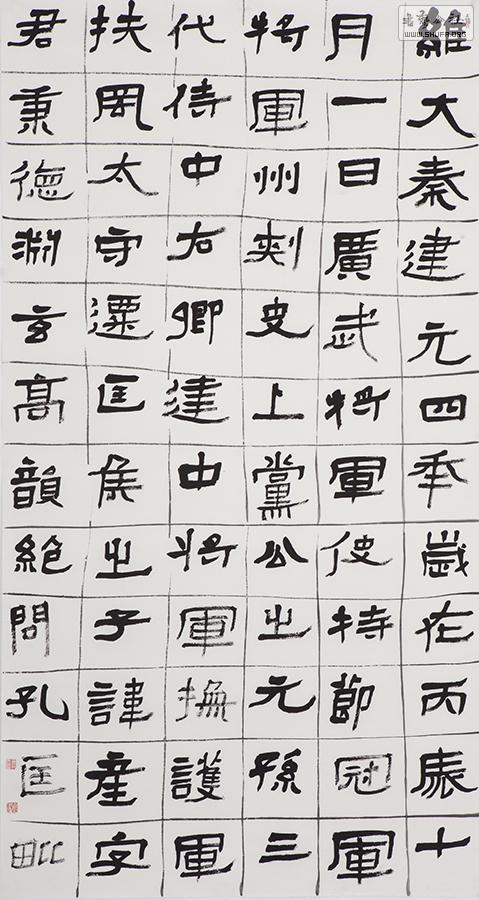 維大秦建元四年歲在丙辰十
月一日廣武將軍使持節冠軍
將軍州刾史上黨公之元孫三
代侍中右卿建中將軍撫護軍
扶風太守遷匡侯之子諱產字
君秉德淵玄高韻絕問孔匡毗
WWW.SHUFA.ORG